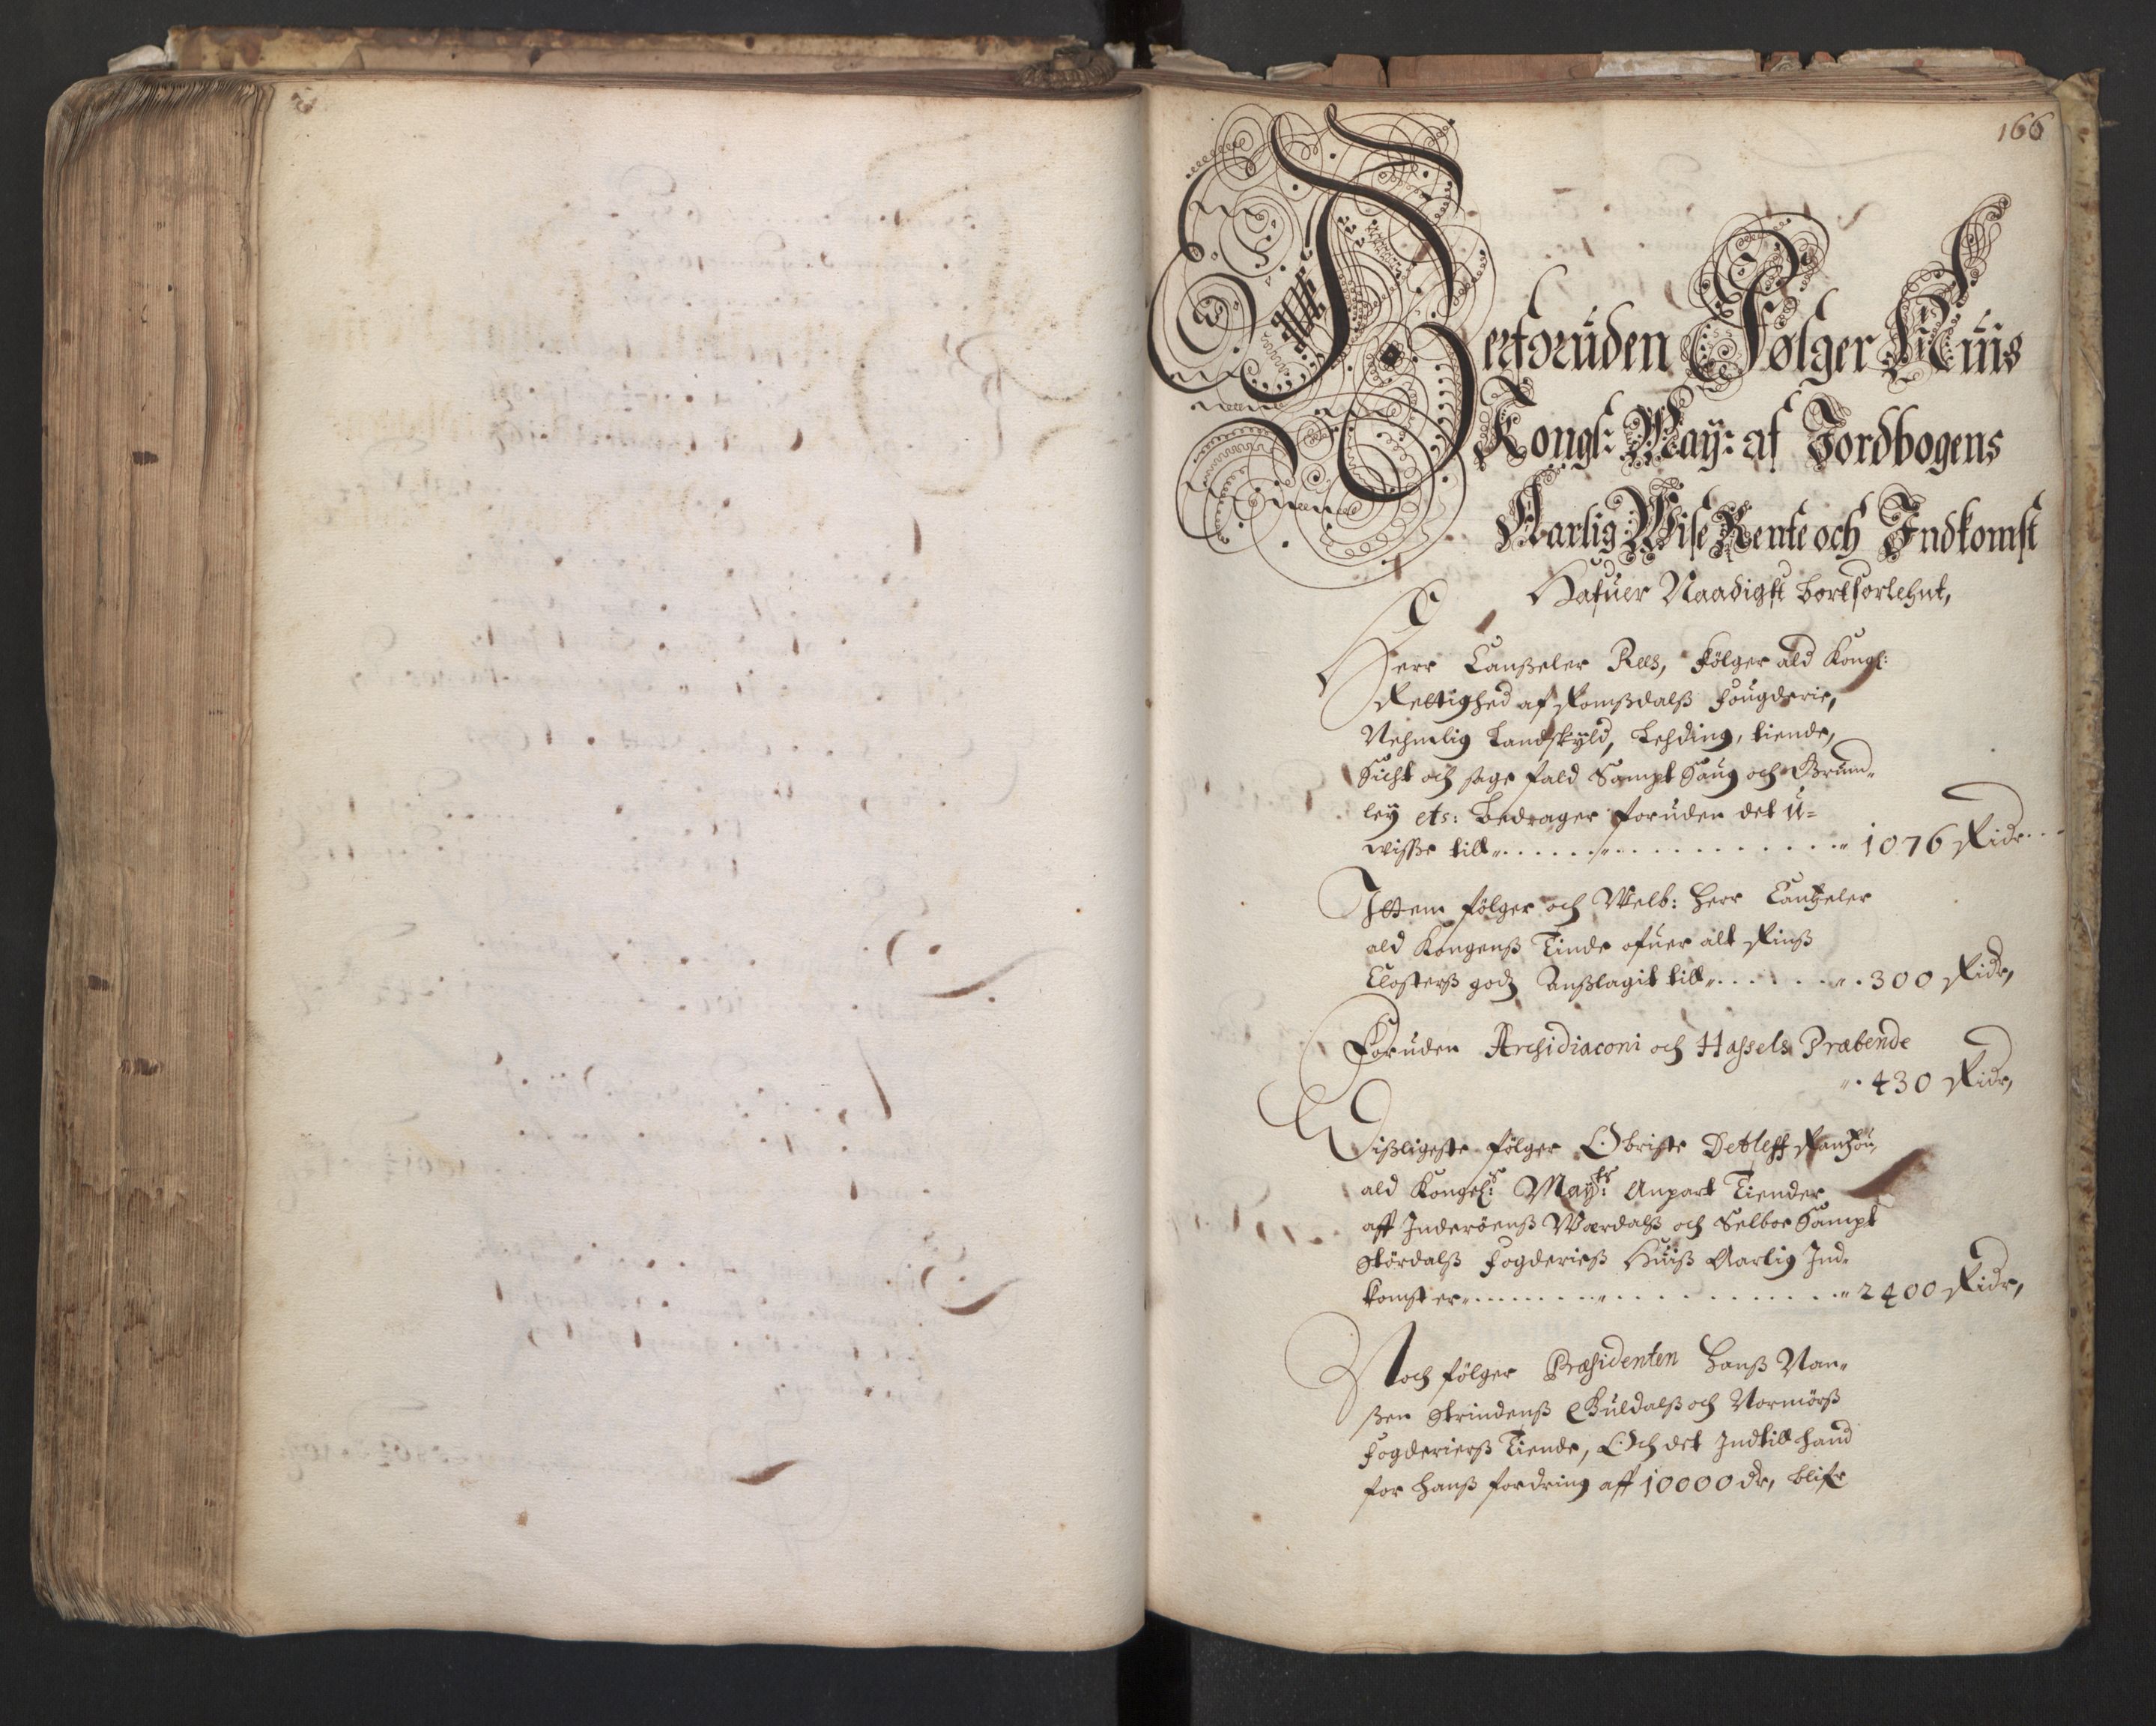 166
Herforuden Følger Huis
Kongl: May: af Jordbogens
Aarlig Wise Rente och Indkomst
Hafuer Naadigst bortforlehnt,
Herr Canßeler Rees, følger ald Kongl:
Rettighed af Romßdalß fougderie,
Nehmlig Landskyld, Lehding, tiende,
Sicht och sage fald Sampt Saug och Grund-
ley etc: Bedrager foruden det u=
wisse till 1076 Rixdr
Ittem følger och Welb: Herr Cantzeler
ald Kongenß Tinde ofuer alt Rinß
Closterß godz Anßlagit till 300 Rixdr,
Foruden Archidiaconi och Hassels Præbende
430 Rixdr,
Dißligeste følger Obriste Detleff Rantzou,
ald Kongel: Maytz: Anpart Tiender
aff Inderöenß Wærdalß och Selboe Sampt
Stördalß fogderieß Huiß Aarlig Ind-
komst er 2400 Rixdr,
Noch følger Præsidenten Hanß Nan-
ßen Strindenß Guldalß och Normörß
fogderierß Tiende, Och det Indtill hand
for hanß fordring aff 10000 dr, blifr